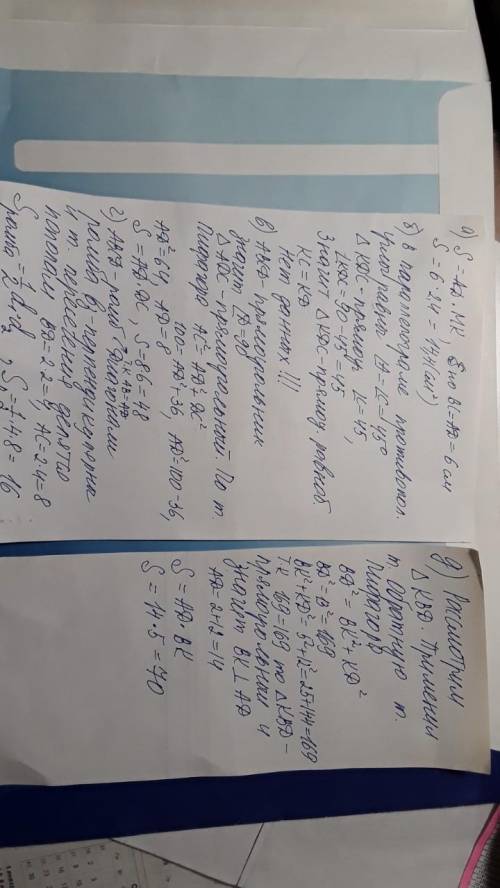 а) S = AD · MK, BC = AD = 6 см
S = 6 · 24 = 144 (см²)
б) в параллелограме противопол.
углы равны ∠A = ∠C = 45°
△ KDC - прямоуг. ∠C = 45,
∠KDC = 90 - 45 = 45
Значит △ KDC - прямоуг. равноб.
KC = KD
Нет данных !!!
в) ABCD - прямоугольник
значит ∠D = 90
△ ADC - прямоугольный. По т.
Пифагора AC² = AD² + DC²
100 = AD² + 36, AD² = 100 - 36,
AD² = 64 AD = 8
S = AD · DC, S = 8·6 = 48
г) ABCD - ромб т.к. AB = AD
Диагонали
ромба перпендикулярны
и т. пересечения делятся
пополам BD = 2·2 = 4, AC = 2·4 = 8
S ромба = ½ d₁·d₂, S = ½ · 4·8 = 16
д) Рассмотрим
△ KBD. Применим
т. обратную т.
Пифагора
BD² = BK² + KD²
BD² = 13² = 169
BK² + KD² = 5² + 12² = 25 + 144 = 169
т.к. 169 = 169 то △ KBD -
прямоугольный и
значит BK ⊥ AD
AD = 2 + 12 = 14
S = AD · BK
S = 14 · 5 = 70